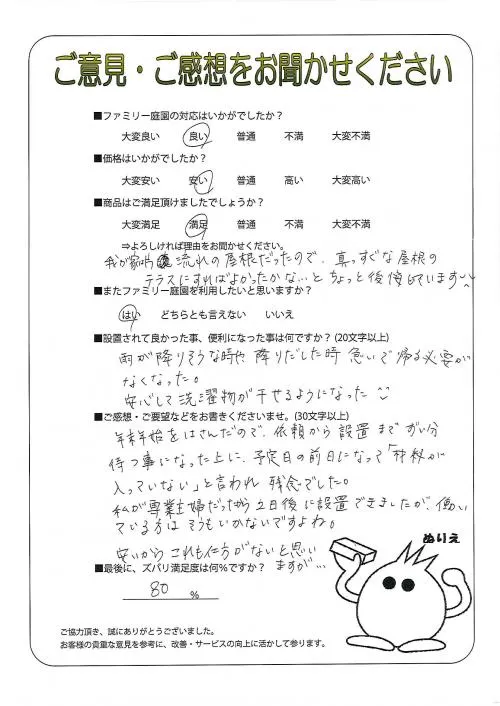 ご意見・ご感想をお聞かせください
■ファミリー庭園の対応はいかがでしたか？
大変良い 良い 普通 不満 大変不満
■価格はいかがでしたか？
大変安い 安い 普通 高い 大変高い
■商品はご満足頂けましたでしょうか？
大変満足 満足 普通 不満 大変不満
⇒よろしければ理由をお聞かせください。
我が家は 流れの屋根だったので、真っすぐな屋根の
テラスにすればよかったかな…とちょっと後悔しています
■またファミリー庭園を利用したいと思いますか？
はい どちらとも言えない いいえ
■設置されて良かった事、便利になった事は何ですか？(20文字以上)
雨が降りそうな時や、降りだした時 急いで帰る必要が
なくなった。
安心して洗濯物が干せるようになった
■ご感想・ご要望などをお書きくださいませ。(30文字以上)
年末年始をはさんだので、依頼から設置まで ずい分
待つ事になった上に、予定日の前日になって「部材が
入っていない」と言われ 残念でした。
私が専業主婦だったから 2日後に設置できましたが、働い
ている方は そうもいかないですよね。
安いから これも仕方がないと思い
ますが…
■最後に、ズバリ満足度は何％ですか？
80 ％
ぬりえ
ご協力頂き、誠にありがとうございました。
お客様の貴重な意見を参考に、改善・サービスの向上に活かして参ります。